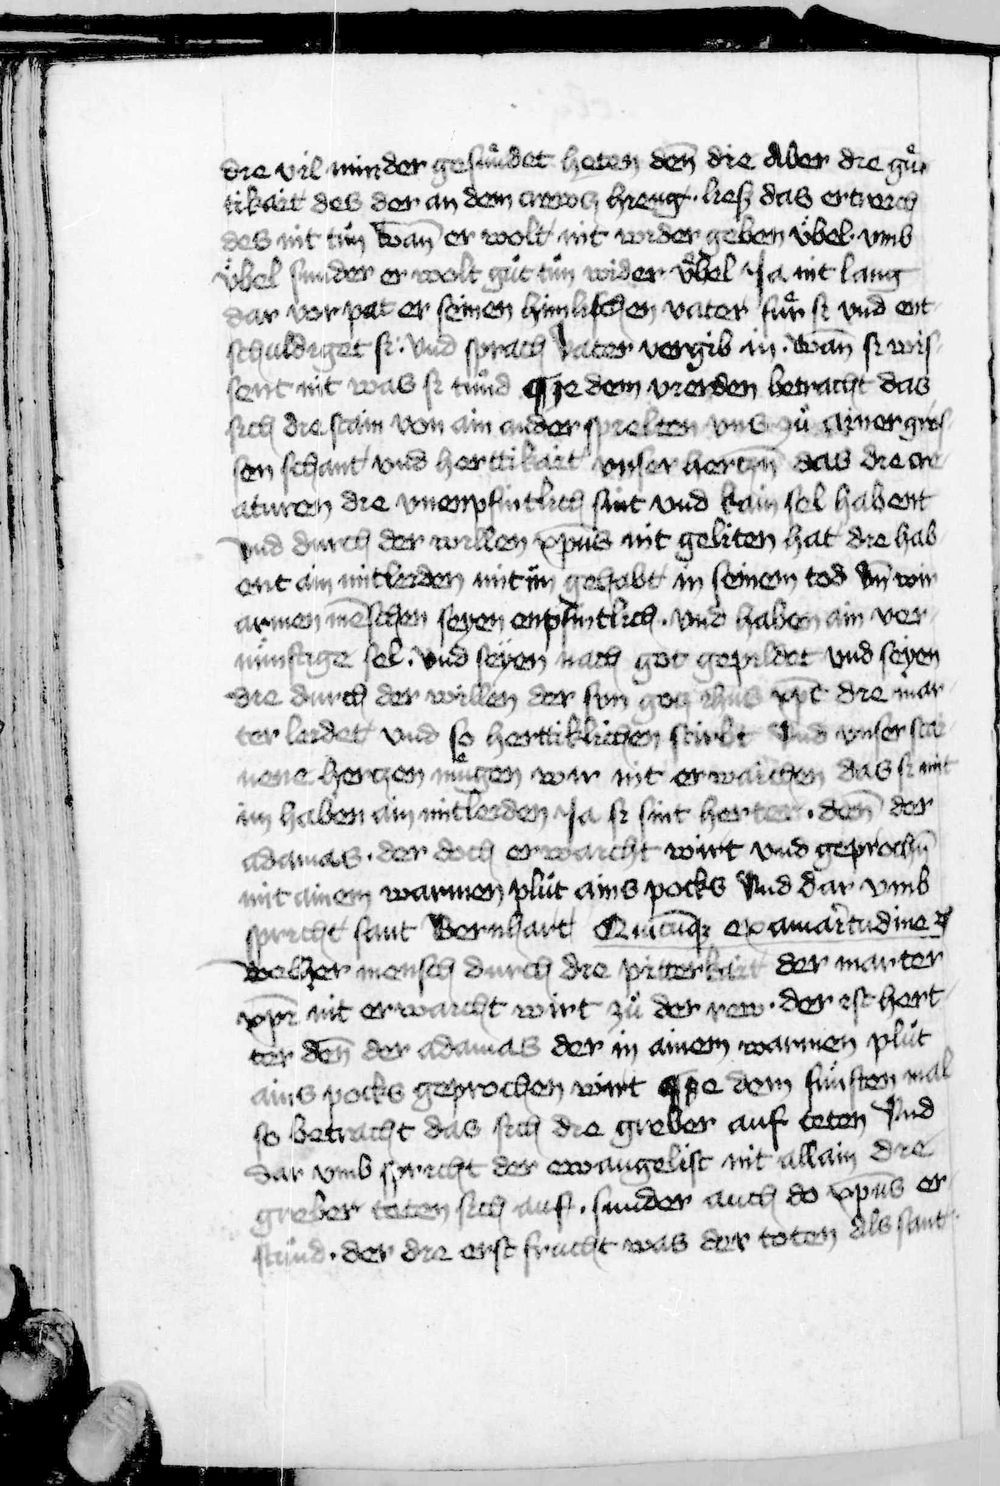 die vil minder gesündet heten den̄ die Aber die gü
tikait des der an dem crewcz hieng · liesz das ertreich
des nit tün wan̄ er wolt nit wider geben übel · vmb
übel sunder er wolt güt tün wider übel Ja nit lang
dar vor pat er seinen himlischen vater für si vnd ent
schuldiget si · Vnd sprach Vater vergib in · wan̄ si wis
sent nit was si tünd ¶ Ze dem vierden betracht das
sich die stain von ain ander spielten vns zü ainer gros
sen schant vnd herttikait vnser herczn̄ das die cre
aturen die vnenpfintlich sint vnd kain sel habent
vnd durch der willen xp̄us nit geliten hat die hab
ent ain mitleiden mit im gehabt in seinem tod Vn̄ wir
armen mēschen seyen enpfintlich · vnd haben ain ver
nünftige sel · vnd seyen nach got gepildet vnd seyen
die durch der willen der sun gocz ihūs xp̄c die mar
ter leidet vnd so herttiklichen stirbt Vnd vnser stai
nene herczen mügen wir nit erwaichen das si mit
im haben ain mitleiden Ja si sint herter · den̄ der
adamas · der doch erwaicht wirt vnd geprochn̄
mit ainem warmen plüt ains pocks Vnd dar vmb
spricht sant Bernhart Quicūq; ex amaritudine
Welher mensch durch die pitterkait der marter
xp̄i nit erwaicht wirt zü der rew · der ist hert
ter den̄ der adamas der in ainem warmen plüt
ains pocks geprochen wirt ¶ Ze dem fünften mal
so betracht das sich die greber auf teten Vnd
dar vmb spricht der ewangelist nit allain die
greber teten sich auf · sunder auch do xp̄us er
stünd · der die erst frucht was der toten als sant